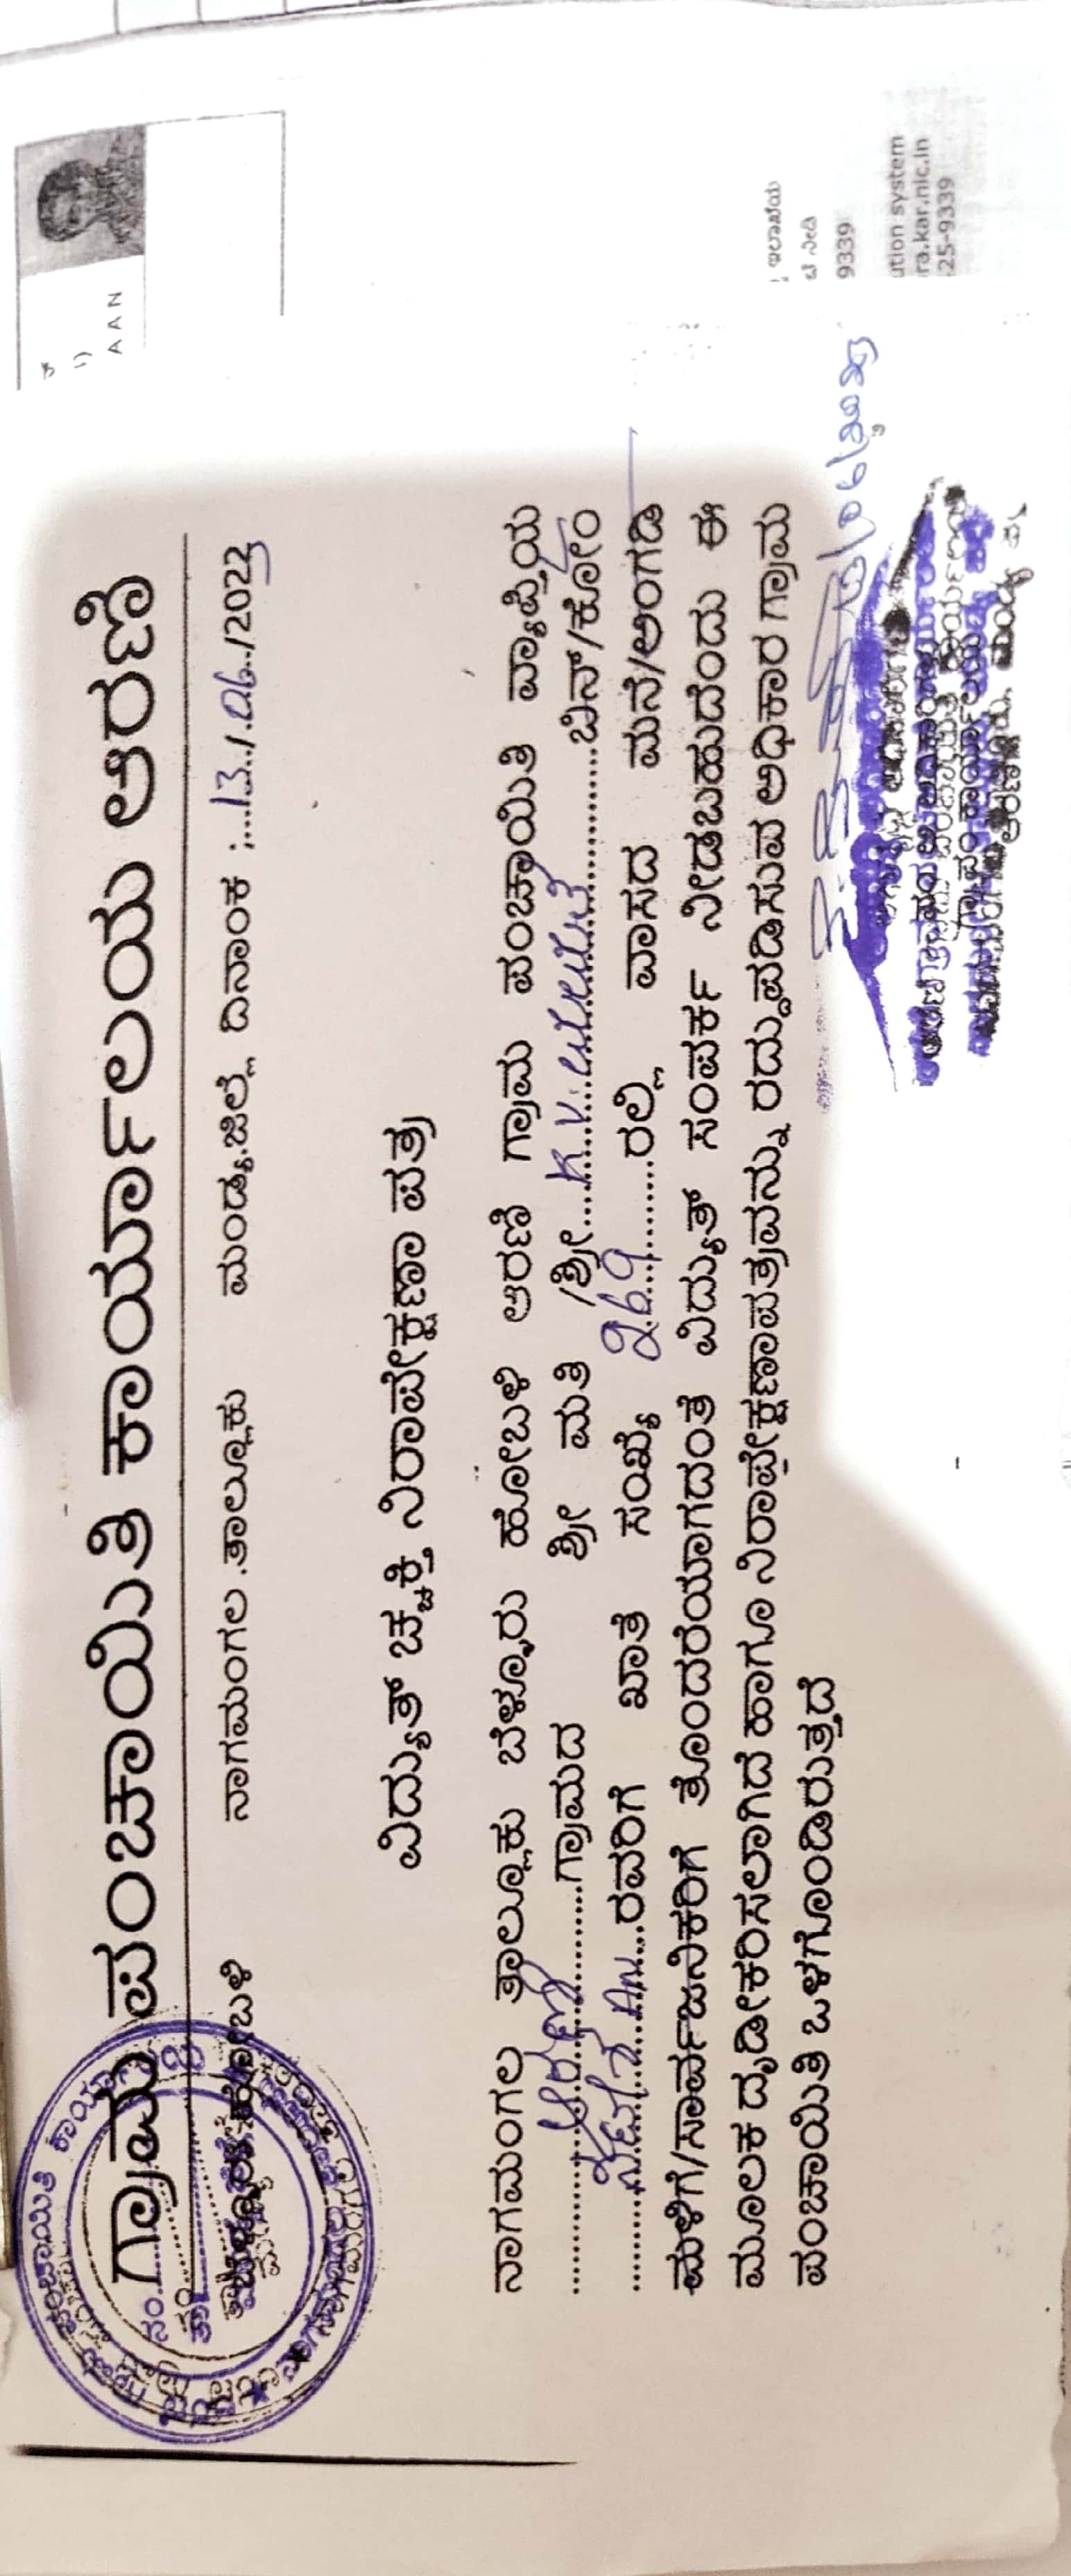 ಗ್ರಾಮ ಪಂಚಾಯಿತಿ ಕಾರ್ಯಾಲಯ ಆರಣಿ
ಬೆಳ್ಳೂರು ಹೋಬಳಿ ನಾಗಮಂಗಲ .ತಾಲ್ಲೂಕು ಮಂಡ್ಯ.ಜಿಲ್ಲೆ ದಿನಾಂಕ :...13../.06../2022
ವಿದ್ಯುತ್ ಚ್ಚಕ್ತಿ ನಿರಾಪೇಕ್ಷಣಾ ಪತ್ರ
ನಾಗಮಂಗಲ ತಾಲ್ಲೂಕು ಬೆಳ್ಳೂರು ಹೋಬಳಿ ಆರಣಿ ಗ್ರಾಮ ಪಂಚಾಯಿತಿ ವ್ಯಾಪ್ತಿಯ
............ಆರಣಿ............ಗ್ರಾಮದ ಶ್ರೀ ಮತಿ /ಶ್ರೀ.....K.V. ............ಬಿನ್/ಕೋಂ
............ A.N...ರವರಿಗೆ ಖಾತೆ ಸಂಖ್ಯೆ 269..........ರಲ್ಲಿ ವಾಸದ ಮನೆ/ಅಂಗಡಿ
ಮಳಿಗೆ/ಸಾರ್ವಜನಿಕರಿಗೆ ತೊಂದರೆಯಾಗದಂತೆ ವಿದ್ಯುತ್ ಸಂಪರ್ಕ ನೀಡಬಹುದೆಂದು ಈ
ಮೂಲಕ ದೃಡೀಕರಿಸಲಾಗಿದೆ ಹಾಗೂ ನಿರಾಪೇಕ್ಷಣಾಪತ್ರವನ್ನು ರದ್ದುಪಡಿಸುವ ಅಧಿಕಾರ ಗ್ರಾಮ
ಪಂಚಾಯಿತಿ ಒಳಗೊಂಡಿರುತ್ತದೆ
A A N
9339
ution system
ra.kar.nic.in
25-9339